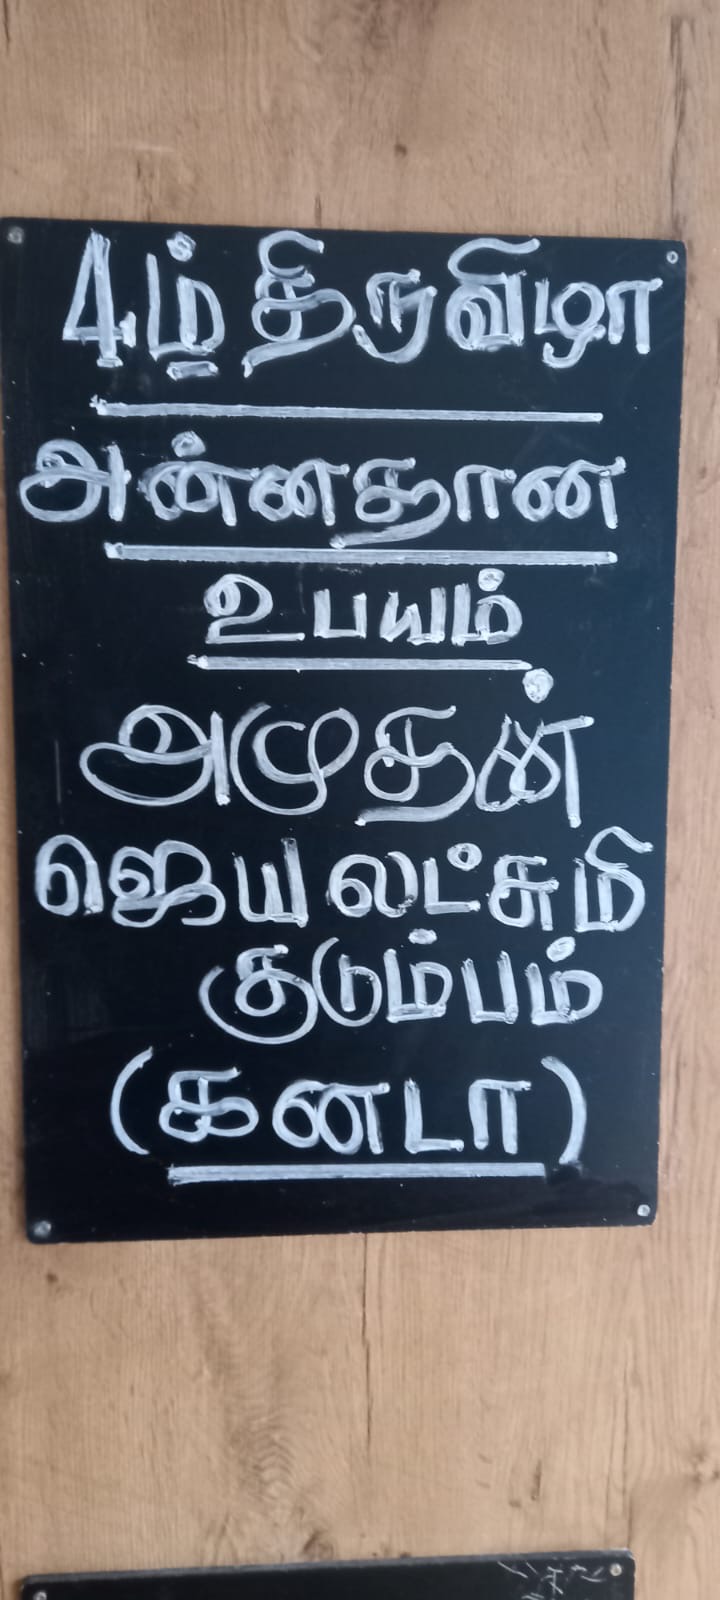 4ம் திருவிழா
அன்னதான
உபயம்
அமுதன்
ஜெயலட்சுமி
குடும்பம்
(கனடா)